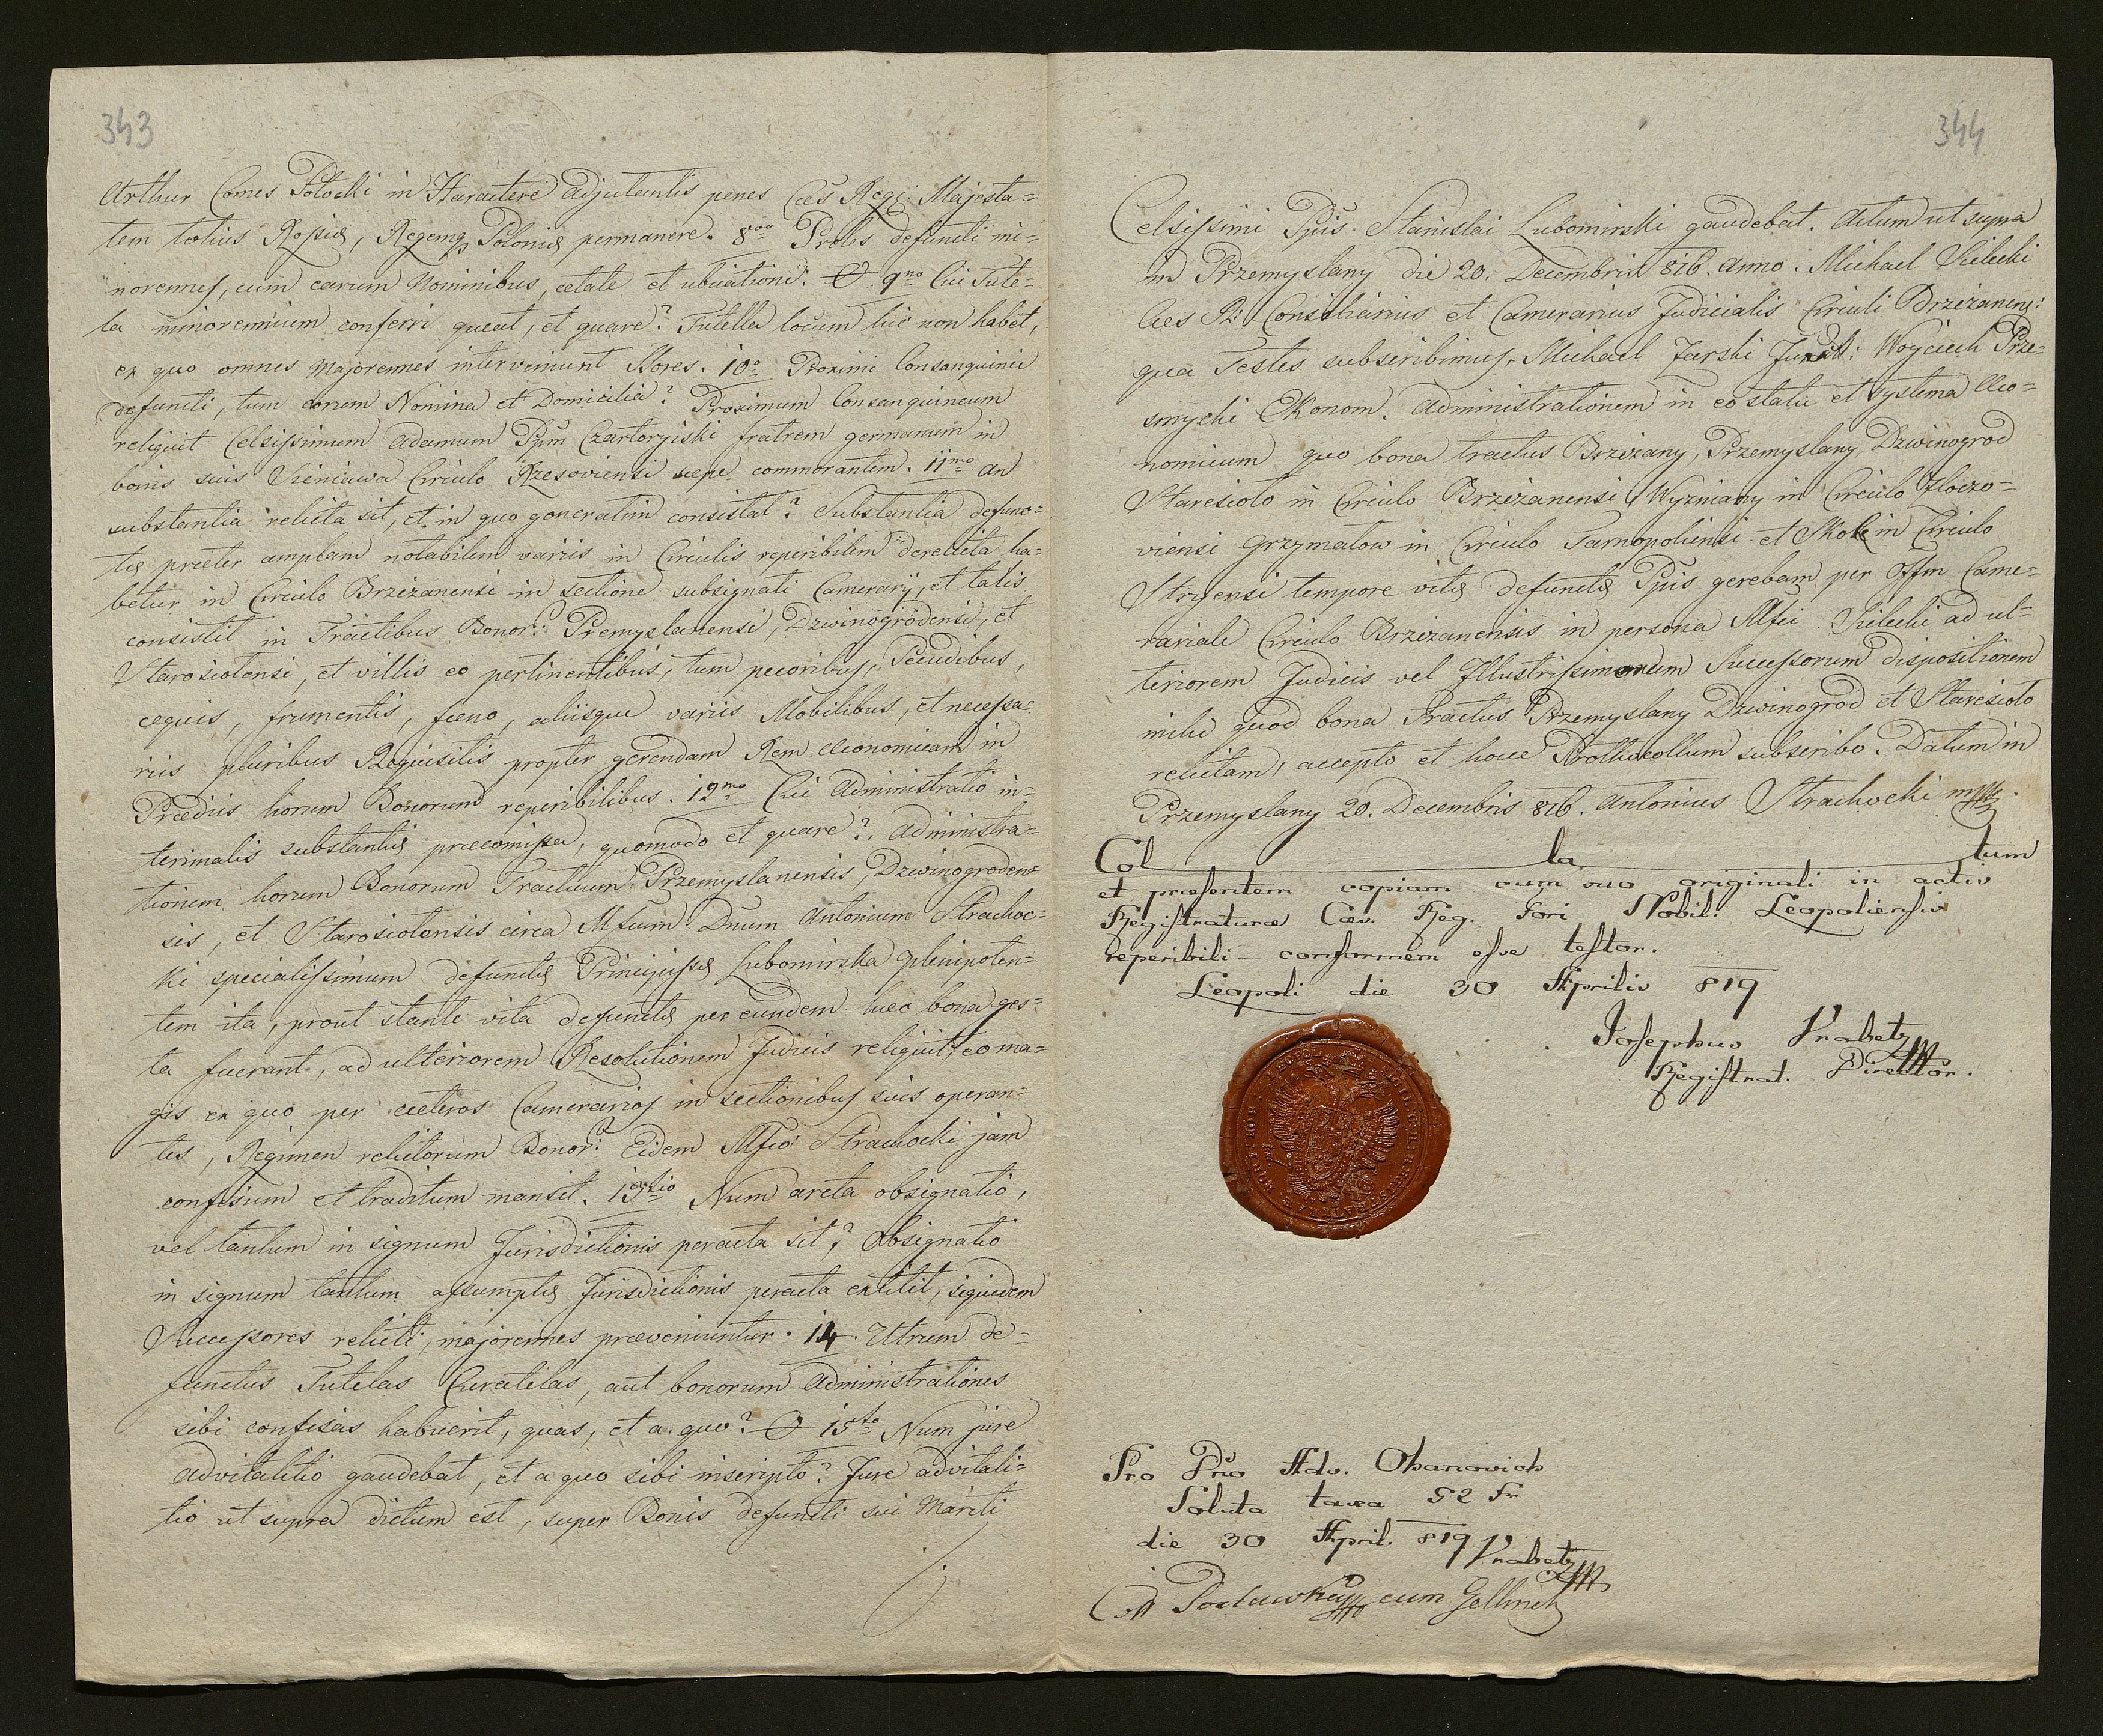 343
Arthur Comes Potocki in Haractere Adjutantis penes Cæs Regi: Majesta=
tem totius Rossiæ, Regemq Poloniæ permanere. 8vo Proles defuncti mi=
norennes, cum earum Nominibus, ætate et ubicatione: O 9no Cui Tute=
la minorennium conferri queat, et quare? Tutella locum hic non habet,
ex quo omnes majorennes interveniunt Hores. 10o Proximi Consanquinei
defuncti, tum eorum Nomina et Domicilia? Proximum Consanquineum
reliquit Celsissimum Adamum Ppm Czartoryiski fratrem germanum in
bonis suis Sieniawa Circulo Rzesoviensi sæpe commorantem. 11mo An
substantia relicta sit, et in quo generatim consistat? Substantia defunc=
tæ præter amplam notabilem variis in Circulis reperibilem derelicta ha=
betur in Circulo Brzezanensi in sectione subsignati Camerarij, et talis
consistit in Tractibus Bonor: Premyslanensi, Dzwinogrodensi, et
Starosiolensi, et villis eo pertinentibus, tum pecoribus, Pecudibus,
equis, frumentis, fæno, aliisque variis Mobilibus, et necessa=
riis pluribus Requisitis propter gerendam Rem Economicam in
Prædiis horum Bonorum reperibilibus. 12mo Cui Administratio in=
terimalis substantiæ præcomissa, quomodo et quare? Administra=
tionem horum Bonorum Tractuum Przemyslanensis, Dzwinogroden=
sis, et Starosiolensis circa Mficum Dnum Antonium Strachoc=
ki specialissimum defunctæ Principissæ Lubomirska plenipoten=
tem ita, prout stante vita defunctæ per eundem hæc bona ges=
ta fuerant, ad ulteriorem Resolutionem Judicii reliquit, eo ma=
gis ex quo per cæteros Camerarios in sectionibus suis operan=
tes, Regimen relictorum Bonor: Eidem Mfico Strachocki jam
confisum et traditum mansit. 13tio Num arcta obsignatio,
vel tantum in signum Jurisdictionis peracta sit? Obsignatio
in signum tantum assumptæ Jurisdictionis peracta extitit, siquidem
Successores relicti majorennes præveniuntur. 14. Utrum de=
functus Tutelas Curatelas, aut bonorum Administrationes
sibi confisas habuerit, quas, et a quo? O 15to Num jure
advitalitio gaudebat, et a quo sibi inscripto? Jure advitali=
tio ut supra dictum est, super Bonis defuncti sui Mariti
344
Celsissimi Ppis Stanislai Lubomirski gaudebat. Actum ut supra
in Przemyslany die 20. Decembris 816. anno. Michael Sielecki
Cæs R: Consiliarius et Camerarius Judicialis Circuli Brzezanens:
qua Testes subscribimus, Michael Jarski Wojciech Prze=
smycki Ekonom. Administrationem in eo statu et systema Eco=
nomicum quo bona tractus Brzezany, Przemyslany Dzwinogrod
Staresioło in Circulo Brzezanensi, Wyzniany in Circulo Złoczo=
viensi Grzymałow in Circulo Tarnopoliensi et Skole in Circulo
Stryensi tempore vitæ defunctæ Ppis gerebam per Offm Came=
rariale Circulo Brzezanensis in persona Mfici Sielecki ad ul=
teriorem Judicis vel Illustrissimorum Successorum dispositionem
mihi quod bona Tractus Przemyslany Dzwinogrod et Staresioło
relictam, accepto et hocce Prothocollum subscribo. Datum in
Przemyslany 20. Decembris 816. Antonius Strachocki mp
Col la tum
et præsentem copiam cum suo originali in activ
Registraturæ Cæs. Reg. Fori Nobil: Leopoliensis
reperibili – conformem esse testor.
Leopoli die 30 Aprilis 819
Josephus Vrabetz mp
Registrat. Director.
Pro Dno Adv. Ohanowich
Soluta taxa 52 Fr
die 30 April. 819 Vrabetz mp
cum Gellinek